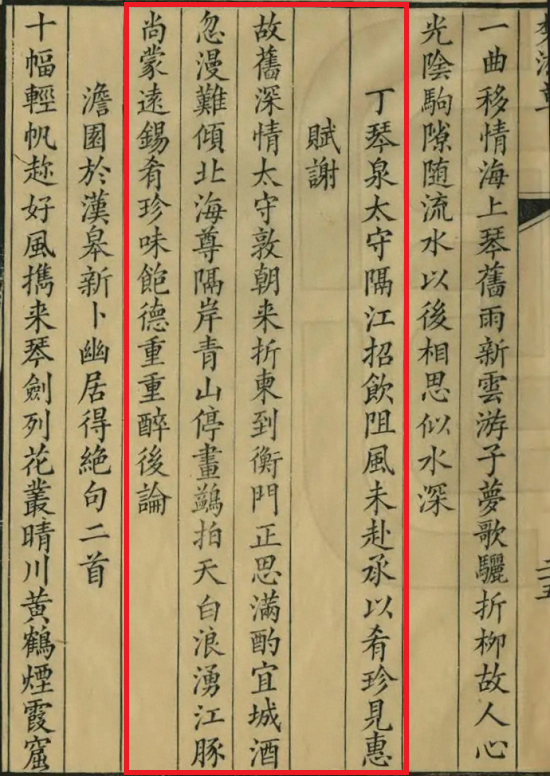 一曲移情海上琴舊雨新雲游子夢歌驪折柳故人心
光陰駒隙随流水以後相思似水深
丁琴泉太守隔江招飲阻風未赴承以肴珍見惠
賦謝
故舊深情太守敦朝来折柬到衡門正思滿酌宜城酒
忽漫難傾北海尊隔岸青山停畫鷁拍天白浪湧江豚
尚蒙遠錫肴珍味飽德重重醉後論
澹園於漢皋新卜幽居得絶句二首
十幅輕帆趂好風擕来琴劍列花叢晴川黄鶴煙霞窟